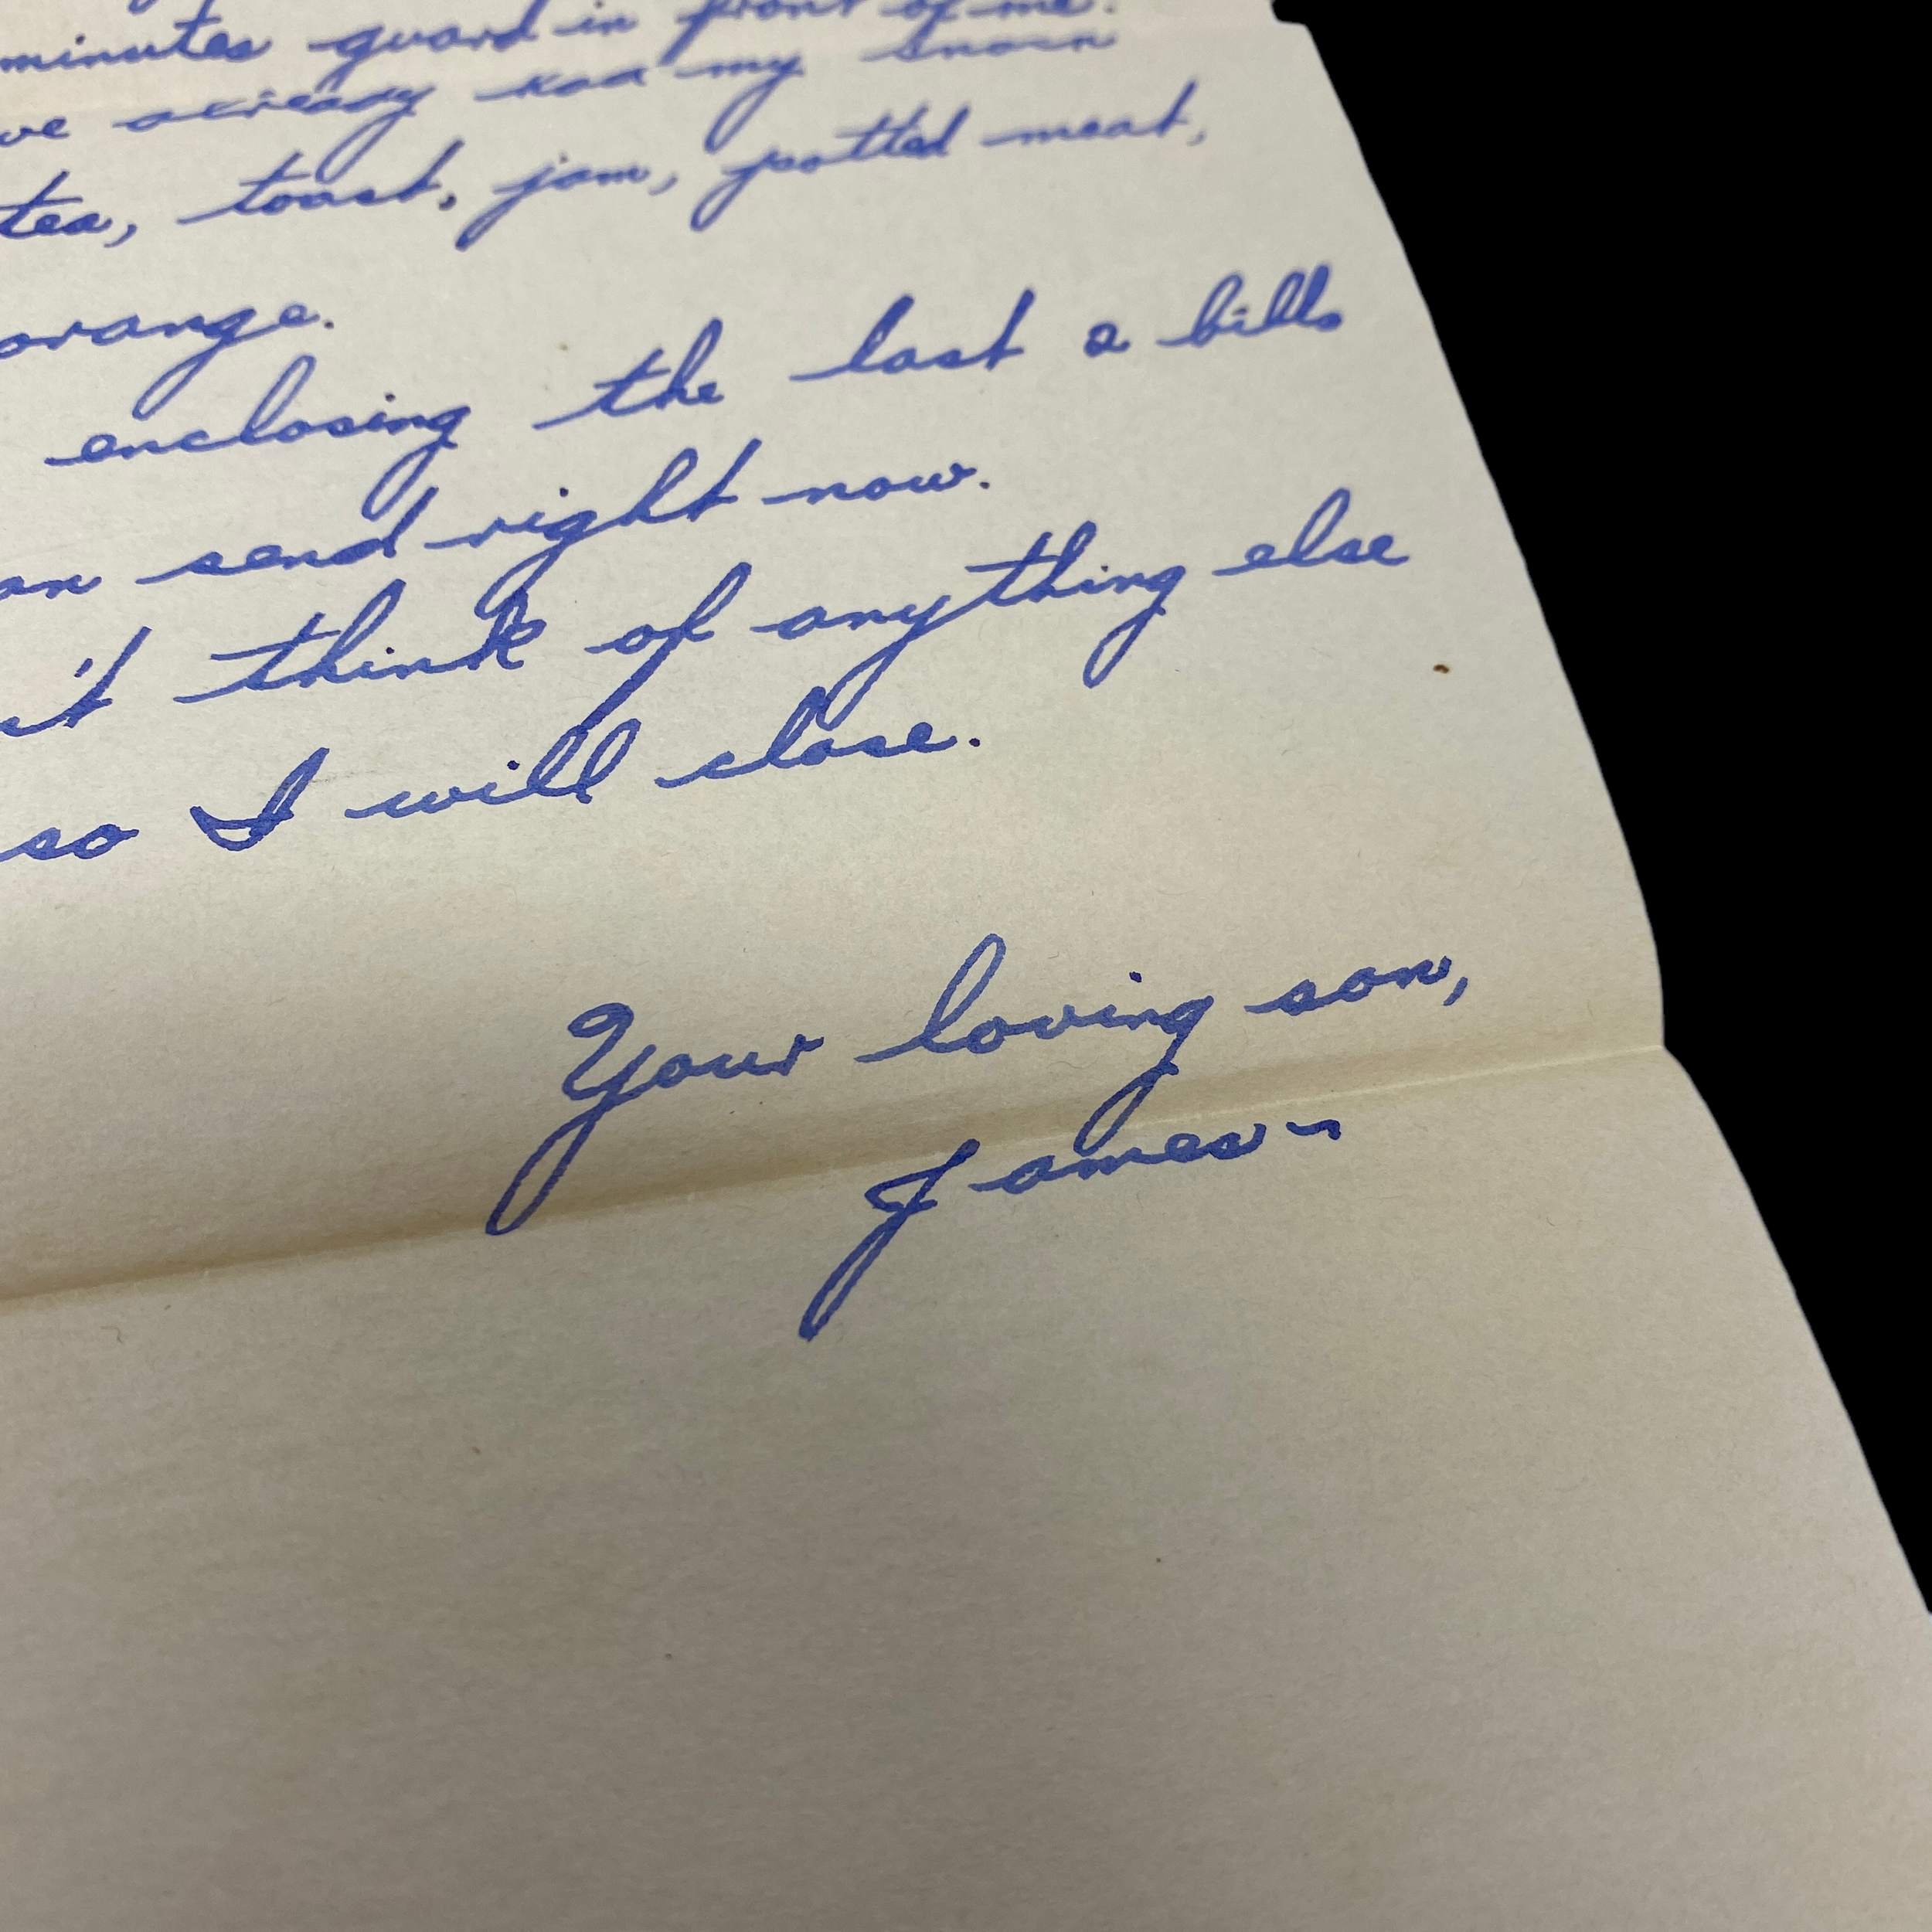 minutes guard in front of me.
ve already had my
tea, toast, jam, potted meat,
orange.
enclosing the last 2 bills
an send right now.
't think of anything else
so I will close.
Your loving son,
James~